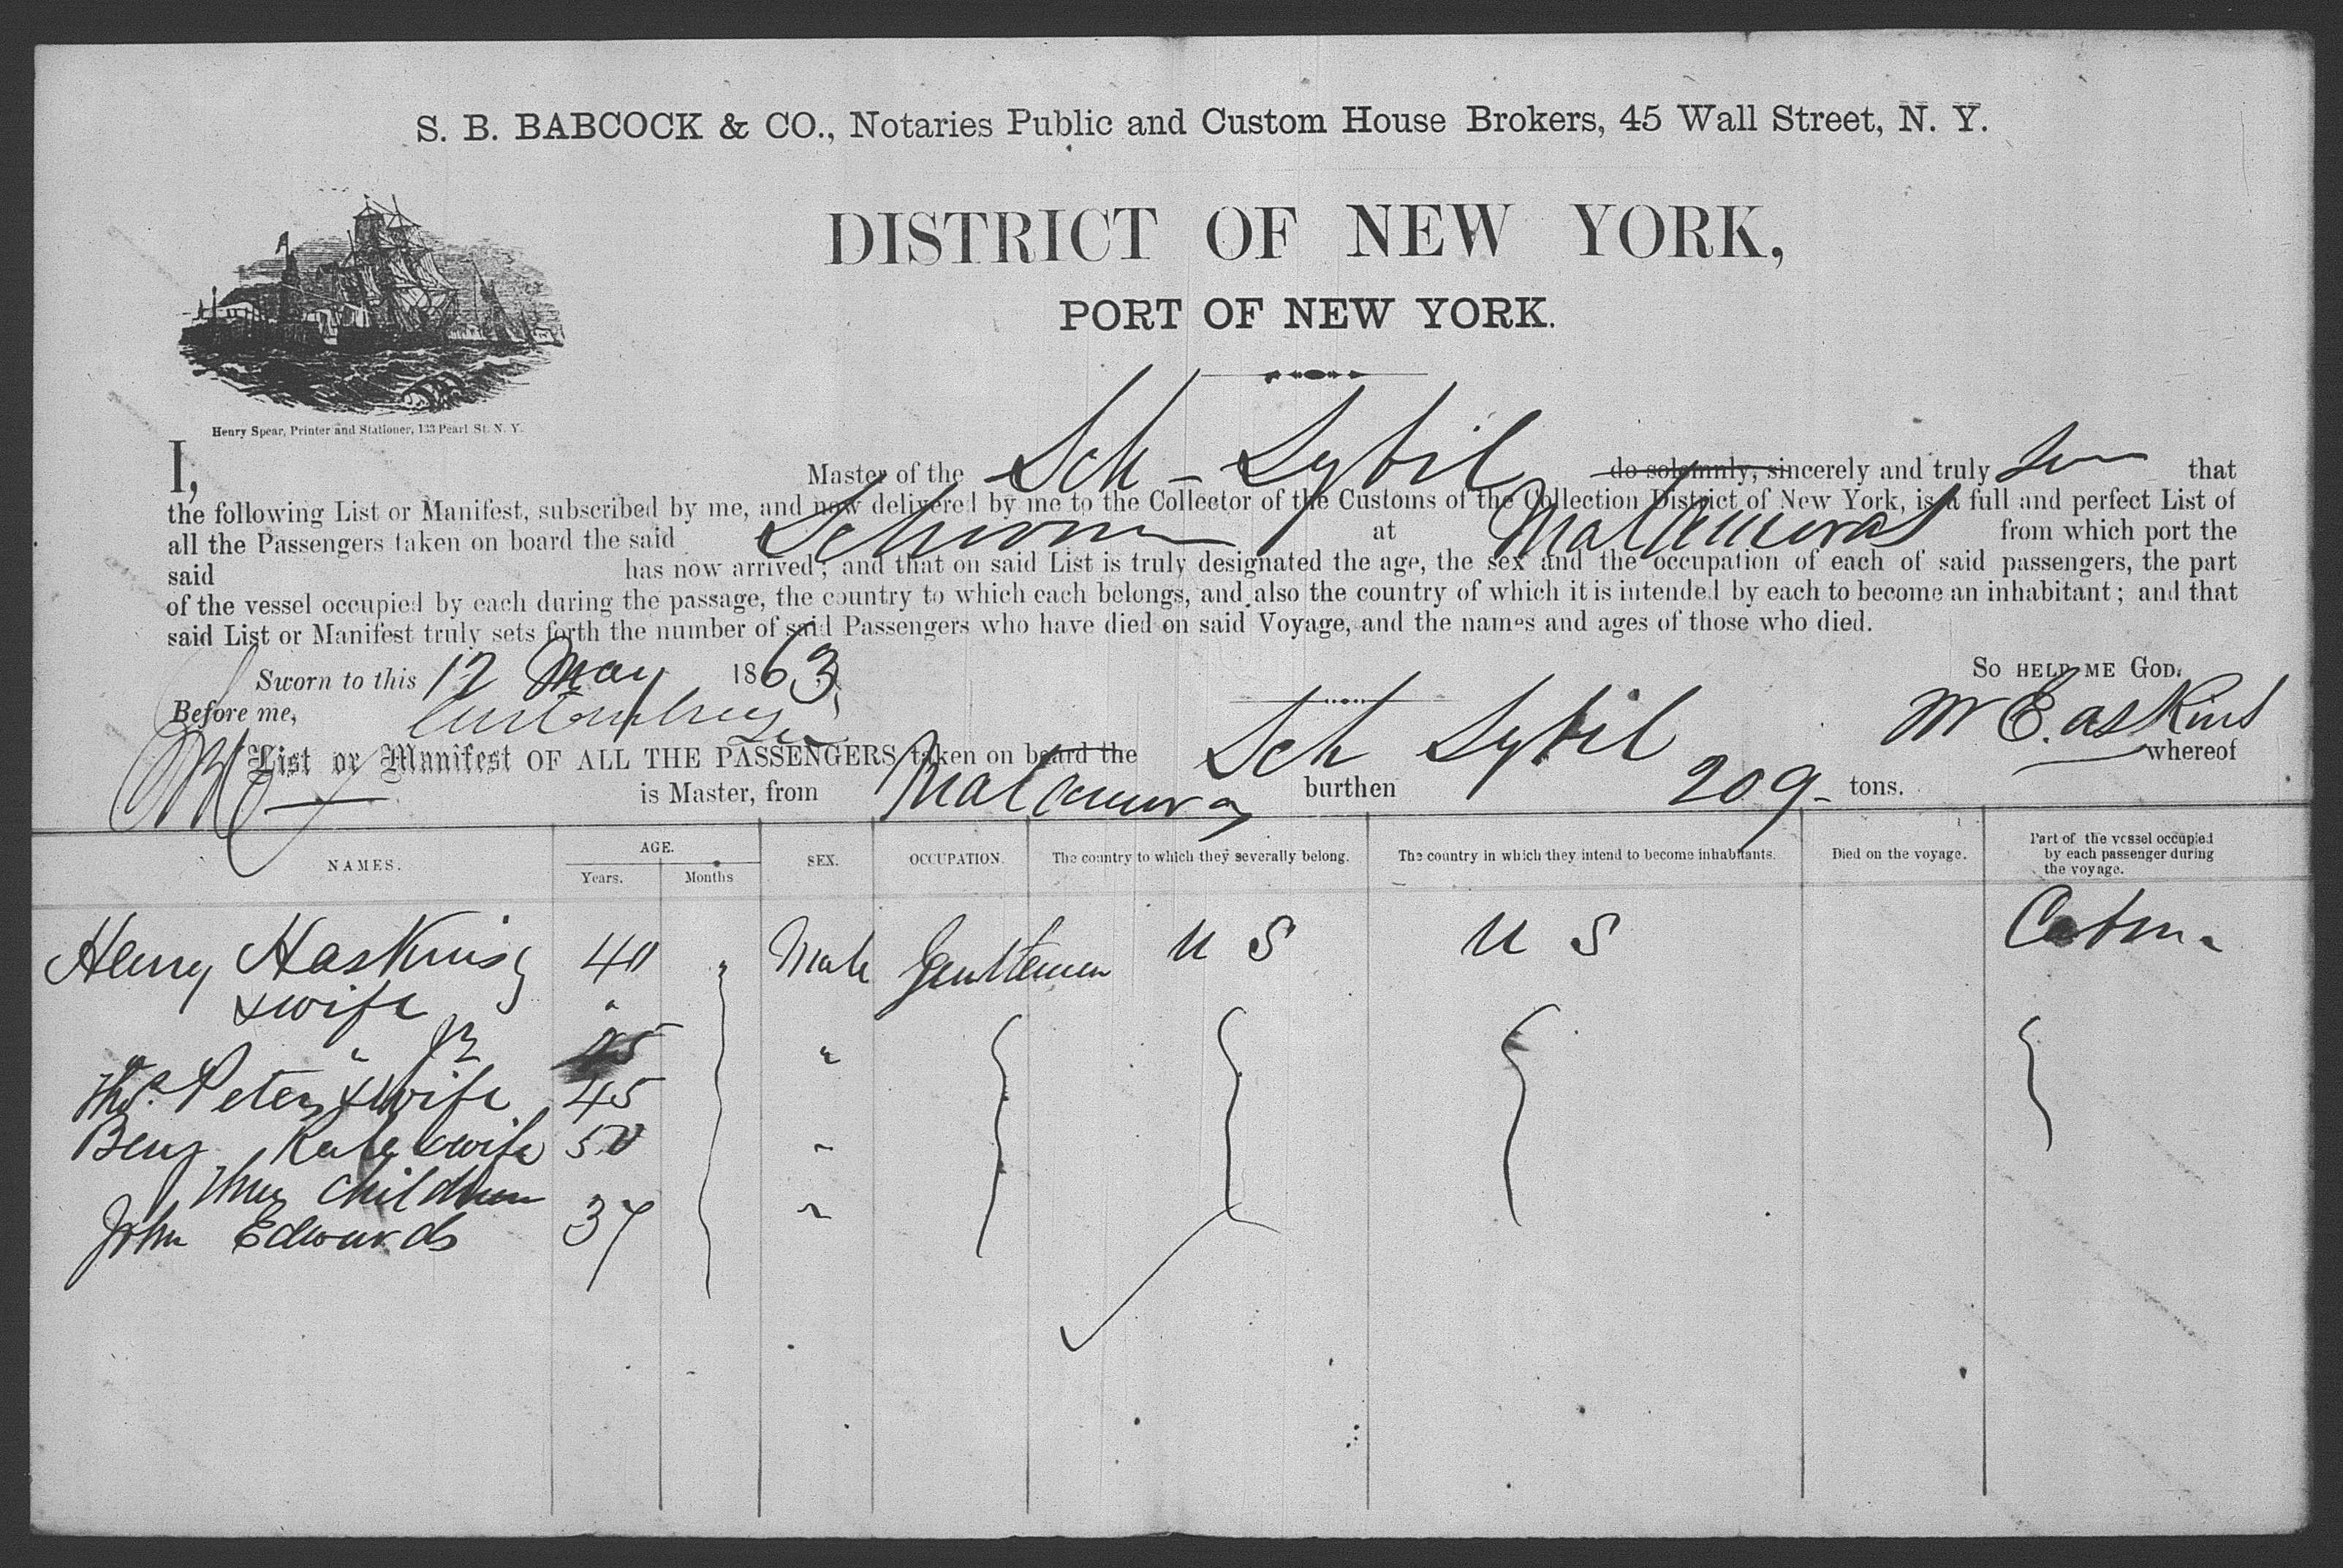 S. B. BABCOCK & CO., Notaries Public and Custom House Brokers, 45 Wall Street, N. Y.
DISTRICT OF NEW YORK,
PORT OF NEW YORK.
Henry Spear, Printer and Stationer, 133 Pearl St. N. Y.
I, Master of the Sch - Sybil do solemnly, sincerely and truly that
the following List or Manifest, subscribed by me, and now delivered by me to the Collector of the Customs of the Collection District of New York, is a full and perfect List of
all the Passengers taken on board the said at Matamoras from which port the
said has now arrived; and that on said List is truly designated the age, the sex and the occupation of each of said passengers, the part
of the vessel occupied by each during the passage, the country to which each belongs, and also the country of which it is intended by each to become an inhabitant; and that
said List or Manifest truly sets forth the number of said Passengers who have died on said Voyage, and the names and ages of those who died.
Sworn to this 12 May 1863 So HELP ME GOD.
Before me,
List or Manifest OF ALL THE PASSENGERS taken on board the Sch Sybil whereof
is Master, from Matamoras burthen 209 - tons.
NAMES. AGE. Years. Months SEX. OCCUPATION. The country to which they severally belong. The country in which they intend to become inhabitants. Died on the voyage. Part of the vessel occupied by each passenger during the voyage.
Henry Haskins 40 " Male Gentleman U S U S
& wife "
" Jr "
Thos. Peters & wife 45
Benj & wife 50 "
Three Children
John Edwards 37 "